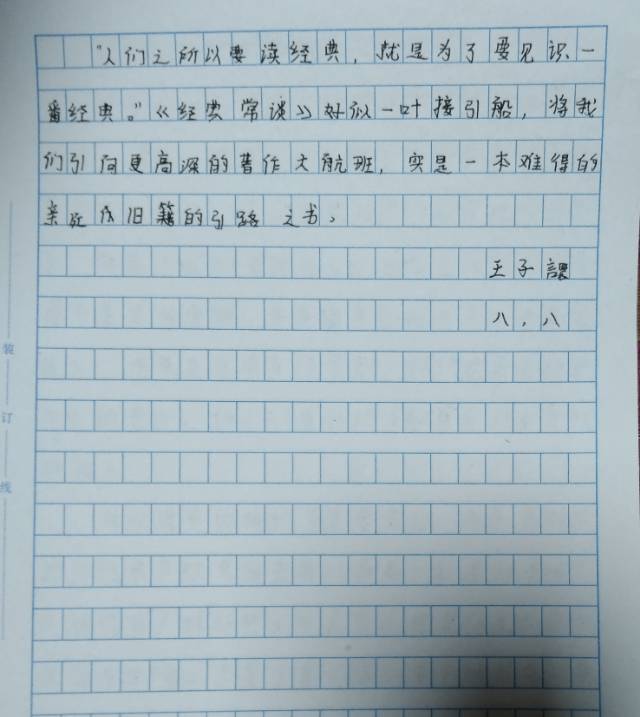 "人们之所以要读经典，就是为了要见识一
番经典。"《经典常谈》好似一叶接引船，将我
们引向更高深的著作大航班，实是一本难得的
亲近古旧籍的引路之书。
王子謖
八．八
装
订
线